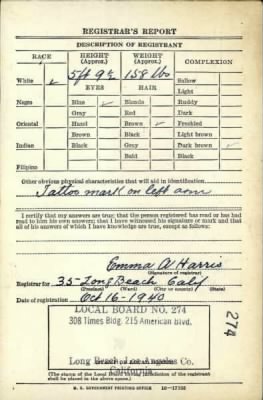 REGISTRAR'S REPORT
DESCRIPTION OF REGISTRANT
RACE HEIGHT (Approx.) WEIGHT (Approx.) COMPLEXION
5ft 9½ 158 lbs
White ✓ Sallow
EYES HAIR Light
Negro Blue ✓ Blonde Ruddy
Gray Red Dark
Oriental Hazel Brown ✓ Freckled
Brown Black Light brown
Indian Black Gray Dark brown ✓
Bald Black
Filipino
Other obvious physical characteristics that will aid in identification
Tattoo mark on left arm
I certify that my answers are true; that the person registered has read or has had
read to him his own answers; that I have witnessed his signature or mark and that
all of his answers of which I have knowledge are true, except as follows:
Emma A Harris
(Signature of registrar)
Registrar for 35 Long Beach Calif
(Precinct) (Ward) (City or county) (State)
Date of registration Oct 16-1940
LOCAL BOARD NO. 274
308 Times Bldg. 215 American Blvd.
Long Beach, Los Angeles Co.
California
274
(The stamp of the Local Board having jurisdiction of the registrant
shall be placed in the above space.)
U. S. GOVERNMENT PRINTING OFFICE